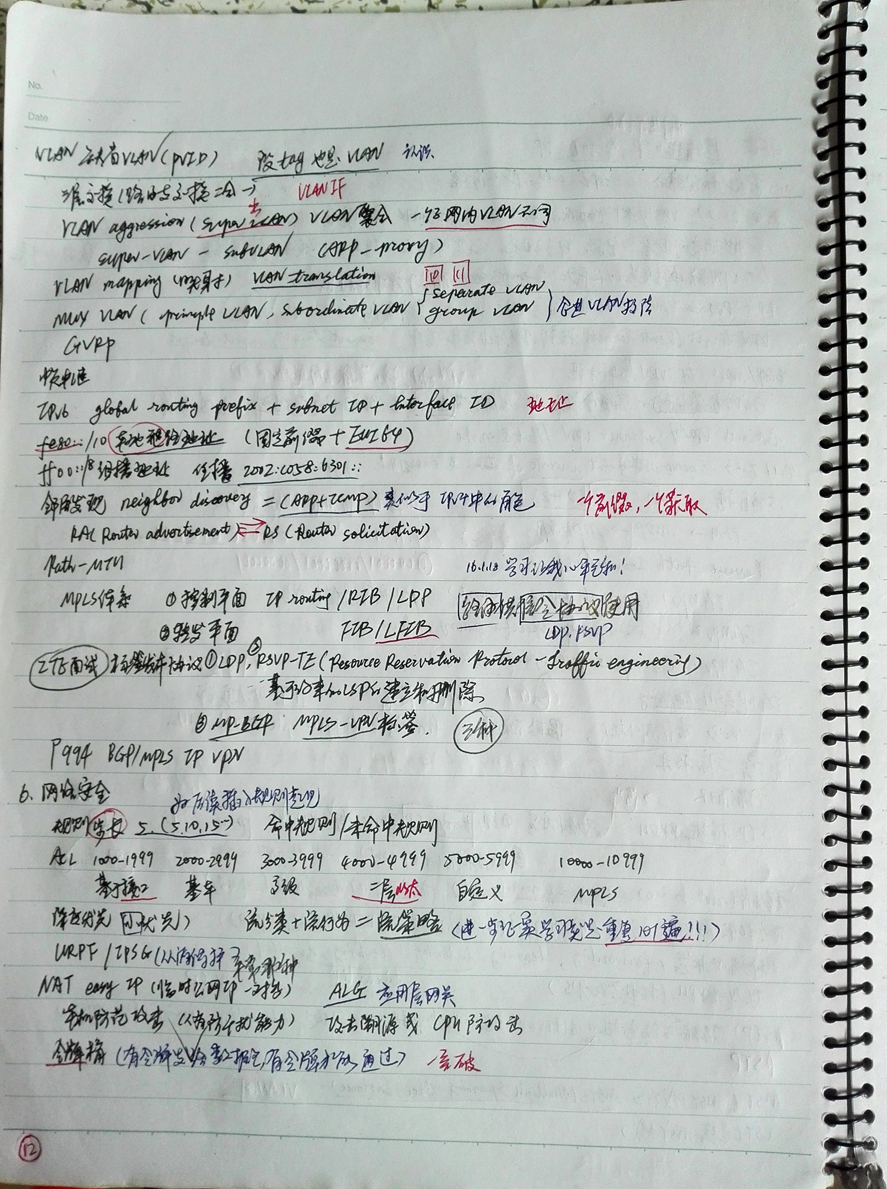 No.
Date
VLAN 缺省VLAN(PVID) 没tag也是VLAN 认识
三层交换(路由与交换二合一) VLANIF
VLAN aggression (super VLAN) VLAN聚合 一个网内VLAN不同
super-VLAN - subVLAN (ARP-proxy)
VLAN mapping (映射) VLAN translation
MUX VLAN (principle VLAN, subordinate VLAN { separate VLAN group VLAN } 企业VLAN
GVRP
帧中继
IPv6 global routing prefix + subnet ID + Interface ID 地址
fe80::/10 本地链路地址 (固定前缀+EUI64)
ff00::/8 组播地址 任播 2002:c058:6301::
邻居发现 neighbor discovery = (ARP+ICMP) 类似于IPv4中的角色 一个前缀,一个获取
RA(Router advertisement) RS(Router solicitation)
Path-MTU 16.1.18 学习让我心平气和!
MPLS体系 ①控制平面 IP routing/RIB/LDP 使用
②转发平面 FIB/LFIB LDP.RSVP
ZTE面试 标签分发协议 ①LDP, ②RSVP-TE (Resource Reservation Protocol - traffic engineering)
基于约束的LSP的建立和删除
③ MP-BGP MPLS-VPN标签. 三种
P994 BGP/MPLS IP VPN
6、网络安全 为后续插入规则
规则步长 5. (5,10,15…) 命中规则/未命中规则
ACL 1000-1999 2000-2999 3000-3999 4000-4999 5000-5999 10000-10999
基于接口 基本 高级 二层 自定义 MPLS
深度优先 流分类+流行为=流策略 (进一步证实学习就是重复n遍!!!)
URPF/IPSG
NAT easy IP (临时公网IP) ALG 应用层网关
攻击溯源 CPU防攻击
令牌桶
12